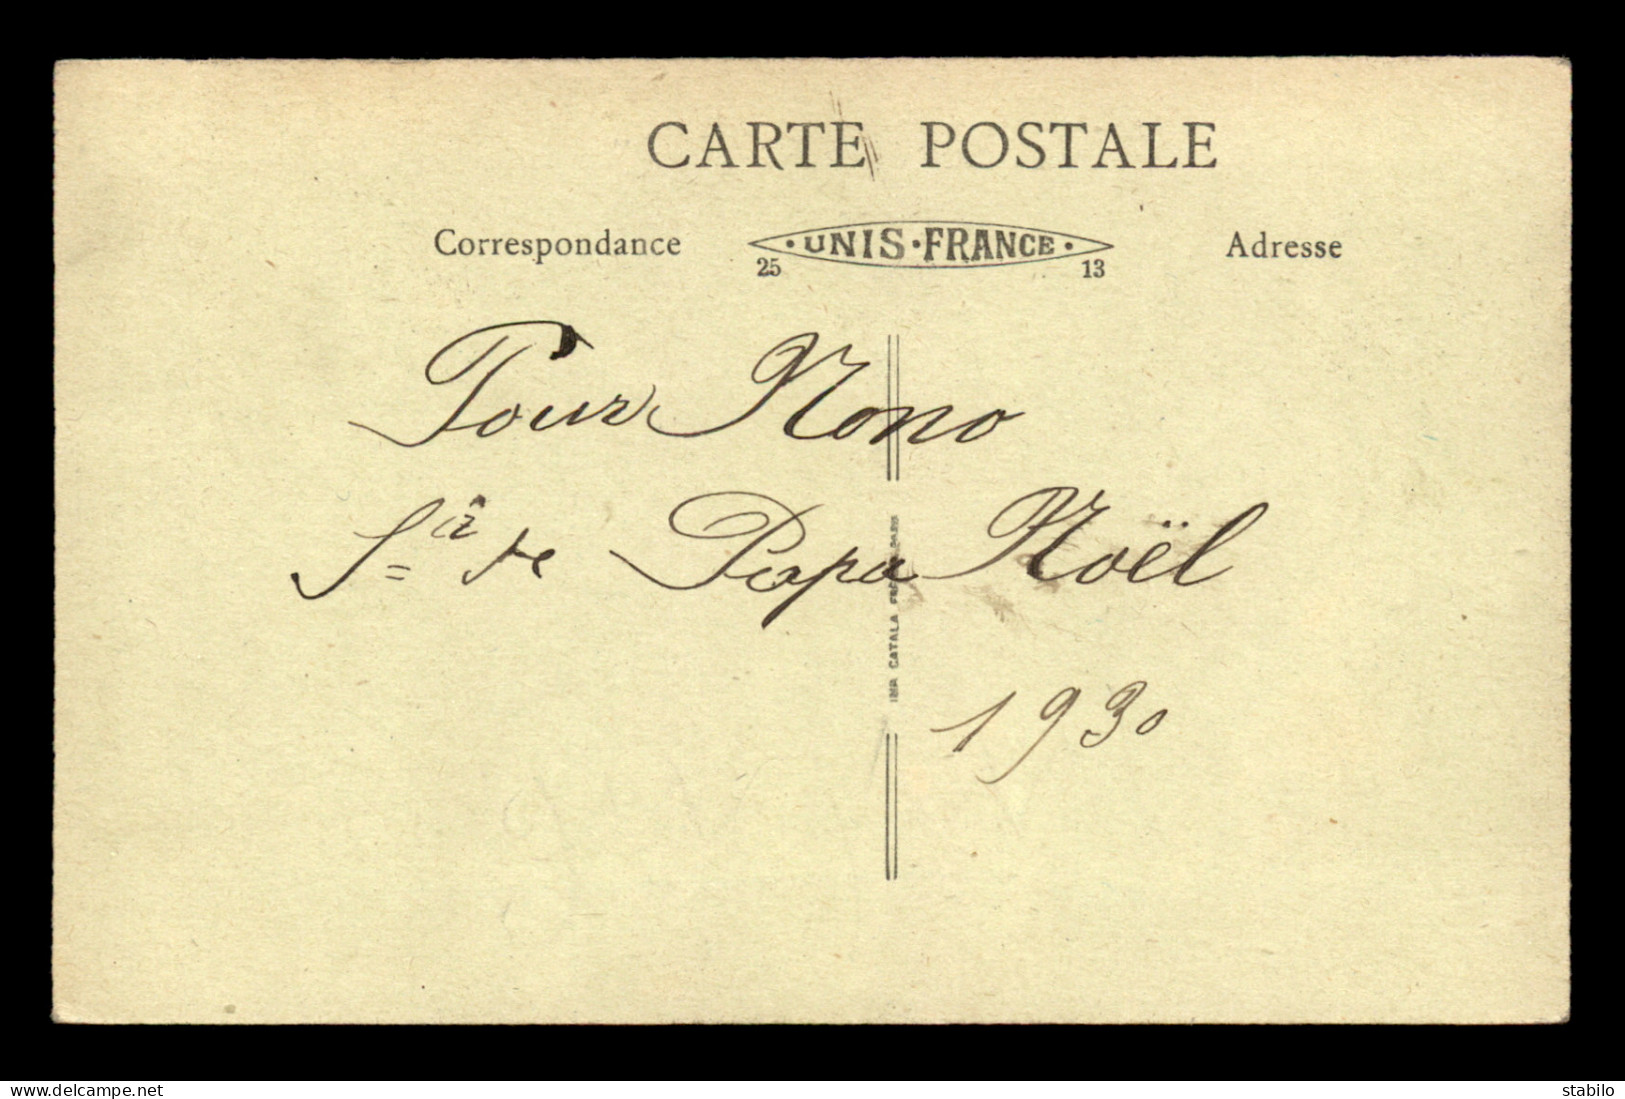 CARTE POSTALE
Correspondance
·UNIS·FRANCE·
25 13
Adresse
Pour Nono
de Papa Noël
1930
IMP. CATALA PARIS
delcampe.net
stabilo